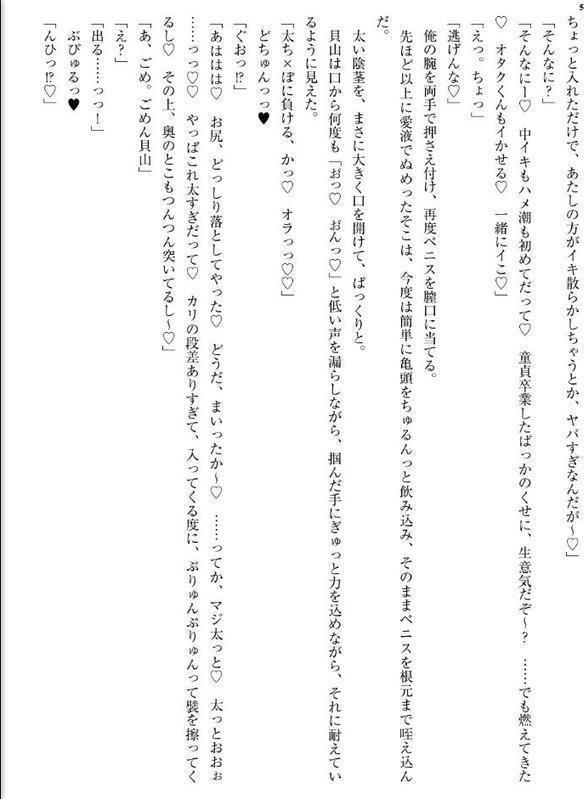 5
ちょっと入れただけで、あたしの方がイキ散らかしちゃうとか、ヤバすぎなんだが～♡」
「そんなに？」
「そんなにー♡　中イキもハメ潮も初めてだって♡　童貞卒業したばっかのくせに、生意気だぞ～？　……でも燃えてきた
♡　オタクくんもイかせる♡　一緒にイこ♡」
「えっ。ちょっ」
「逃げんな♡」
　俺の腕を両手で押さえ付け、再度ペニスを膣口に当てる。
　先ほど以上に愛液でぬめったそこは、今度は簡単に亀頭をちゅるんっと飲み込み、そのままペニスを根元まで咥え込ん
だ。
　太い陰茎を、まさに大きく口を開けて、ぱっくりと。
　貝山は口から何度も「おっ♡　おんっ♡」と低い声を漏らしながら、掴んだ手にぎゅっと力を込めながら、それに耐えてい
るように見えた。
「太ち×ぽに負ける、かっ♡　オラっっ♡♡」
　どちゅんっっ♥
「ぐおっ!?」
「あははは♡　お尻、どっしり落としてやった♡　どうだ、まいったか～♡　……ってか、マジ太っと♡　太っとおおぉ
……っっ♡♡　やっぱこれ太すぎだって♡　カリの段差ありすぎて、入ってくる度に、ぷりゅんぷりゅんって襞を擦ってく
るし♡　その上、奥のとこもつんつん突いてるし～♡」
「あ、ごめ。ごめん貝山」
「え？」
「出る……っっ！」
　ぶびゅるっ♥
「んひっ!?♡」